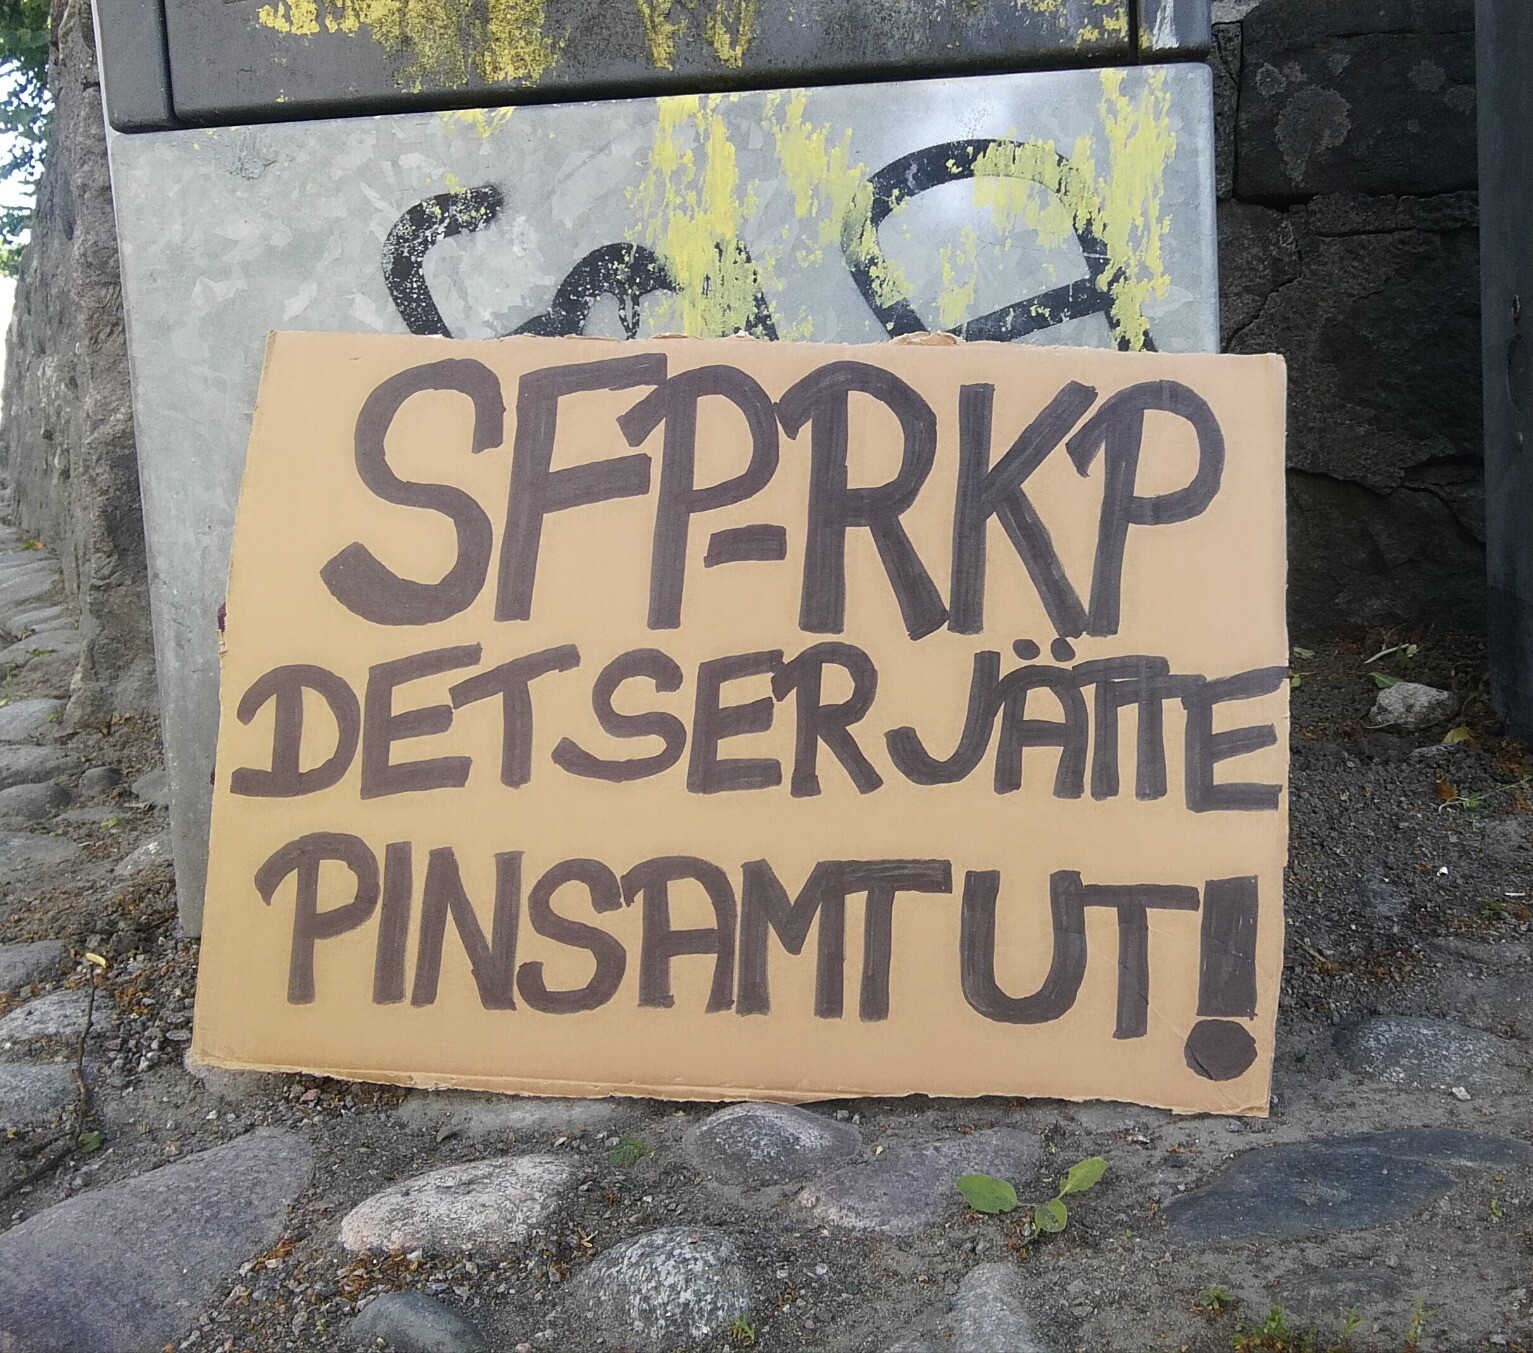 SFP-RKP
DET SER JÄTTE
PINSAMT UT!